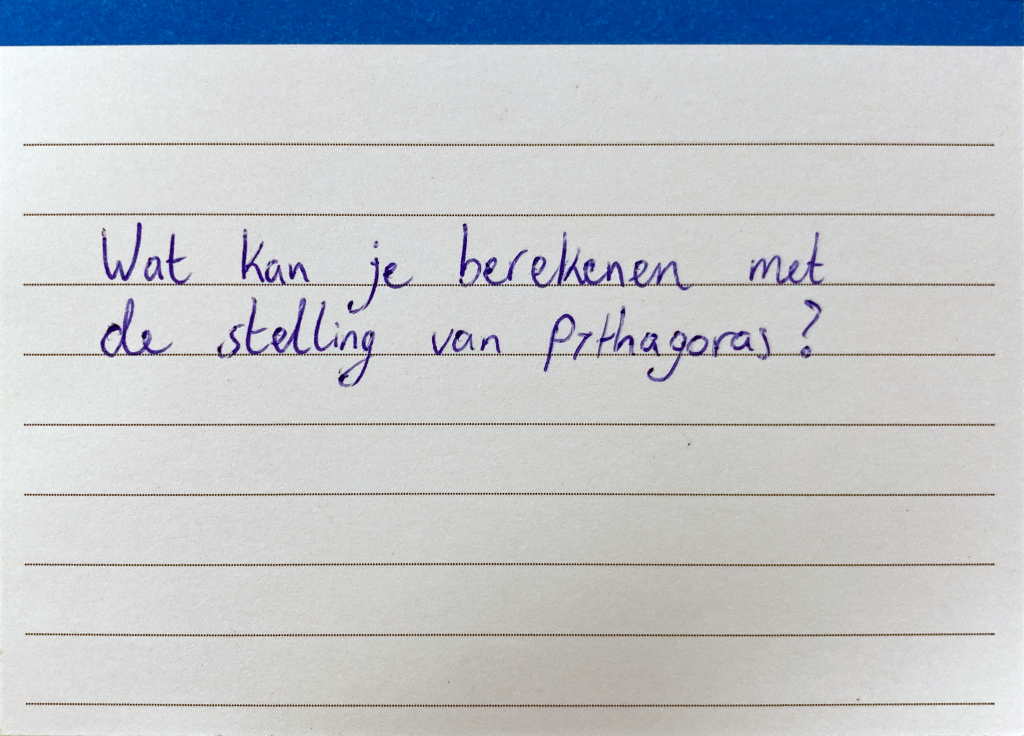 Wat kan je berekenen met
de stelling van Pythagoras?